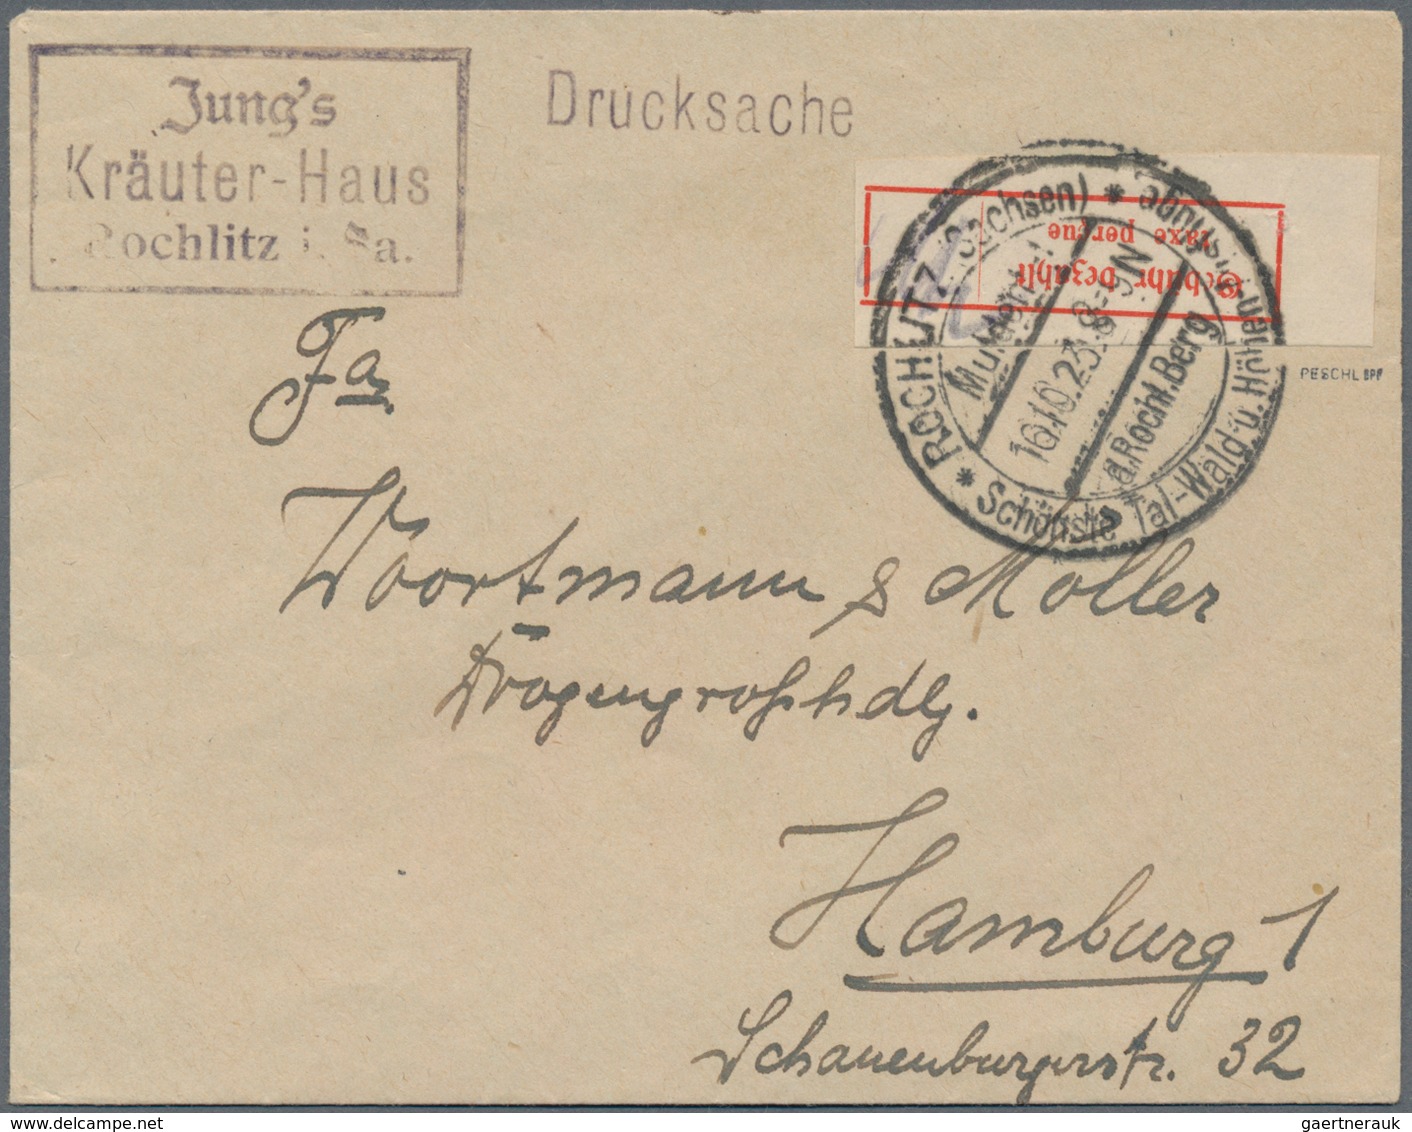 Jung's
Kräuter-Haus
Rochlitz i. Sa.
Drucksache
Gebühr bezahlt
taxe perçue
* ROCHLITZ (Sachsen) *
Schönste Tal-Wald u. Höhen
Mulden
16.10.23.8-9N
a.Rochl.Berg
PESCHL BPP
Fa.
Woortmann & Möller
Drogengroßhdlg.
Hamburg 1
Schauenburgerstr. 32
gaertnerauk